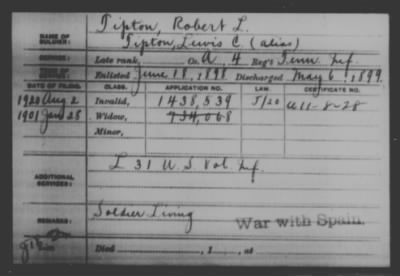 NAME OF SOLDIER: Tipton, Robert L.
Tipton, Lewis C. (alias)
SERVICE: Late rank, Co. A, 4 Reg't Tenn. Inf.
TERM OF SERVICE: Enlisted June 18, 1898 Discharged May 6, 1899
DATE OF FILING. CLASS. APPLICATION NO. LAW. CERTIFICATE NO.
1920 Aug 2 Invalid, 1438,539 5/20 a11-8-28
1901 Jan 28 Widow, 734,068
Minor,
ADDITIONAL SERVICES: L 31 U.S. Vol. Inf.
REMARKS: Soldier Living War with Spain.
Died , 1 , at